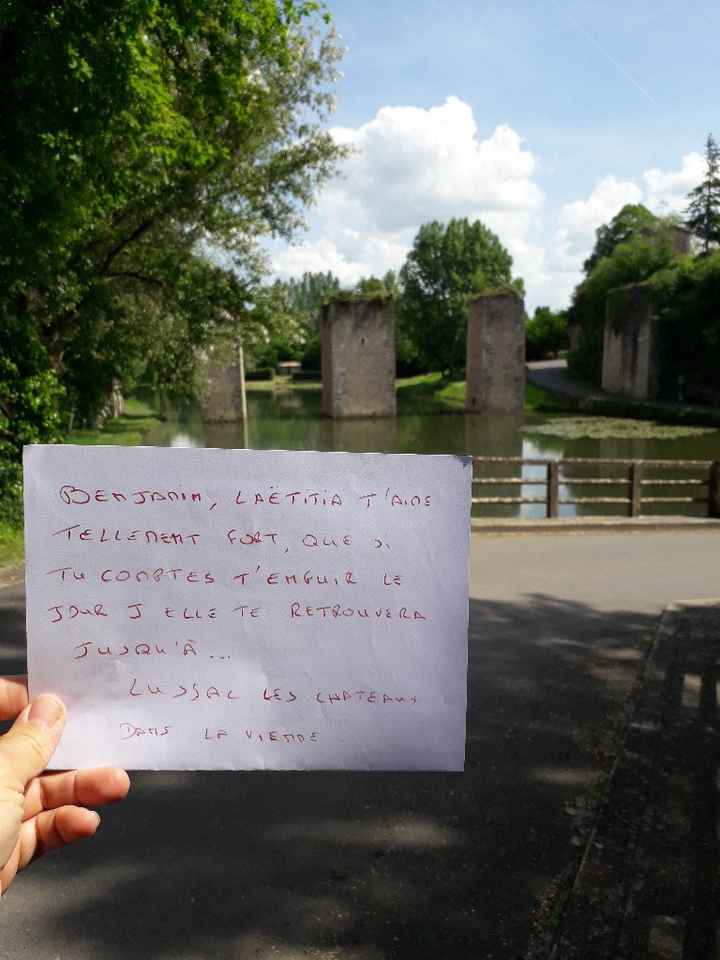 BENJAMIN, LAËTITIA T'AIME
TELLEMENT FORT, QUE SI
TU COMPTES T'ENFUIR LE
JOUR J ELLE TE RETROUVERA
JUSQU'À...
LUSSAC LES CHATEAUX
DANS LA VIENNE.